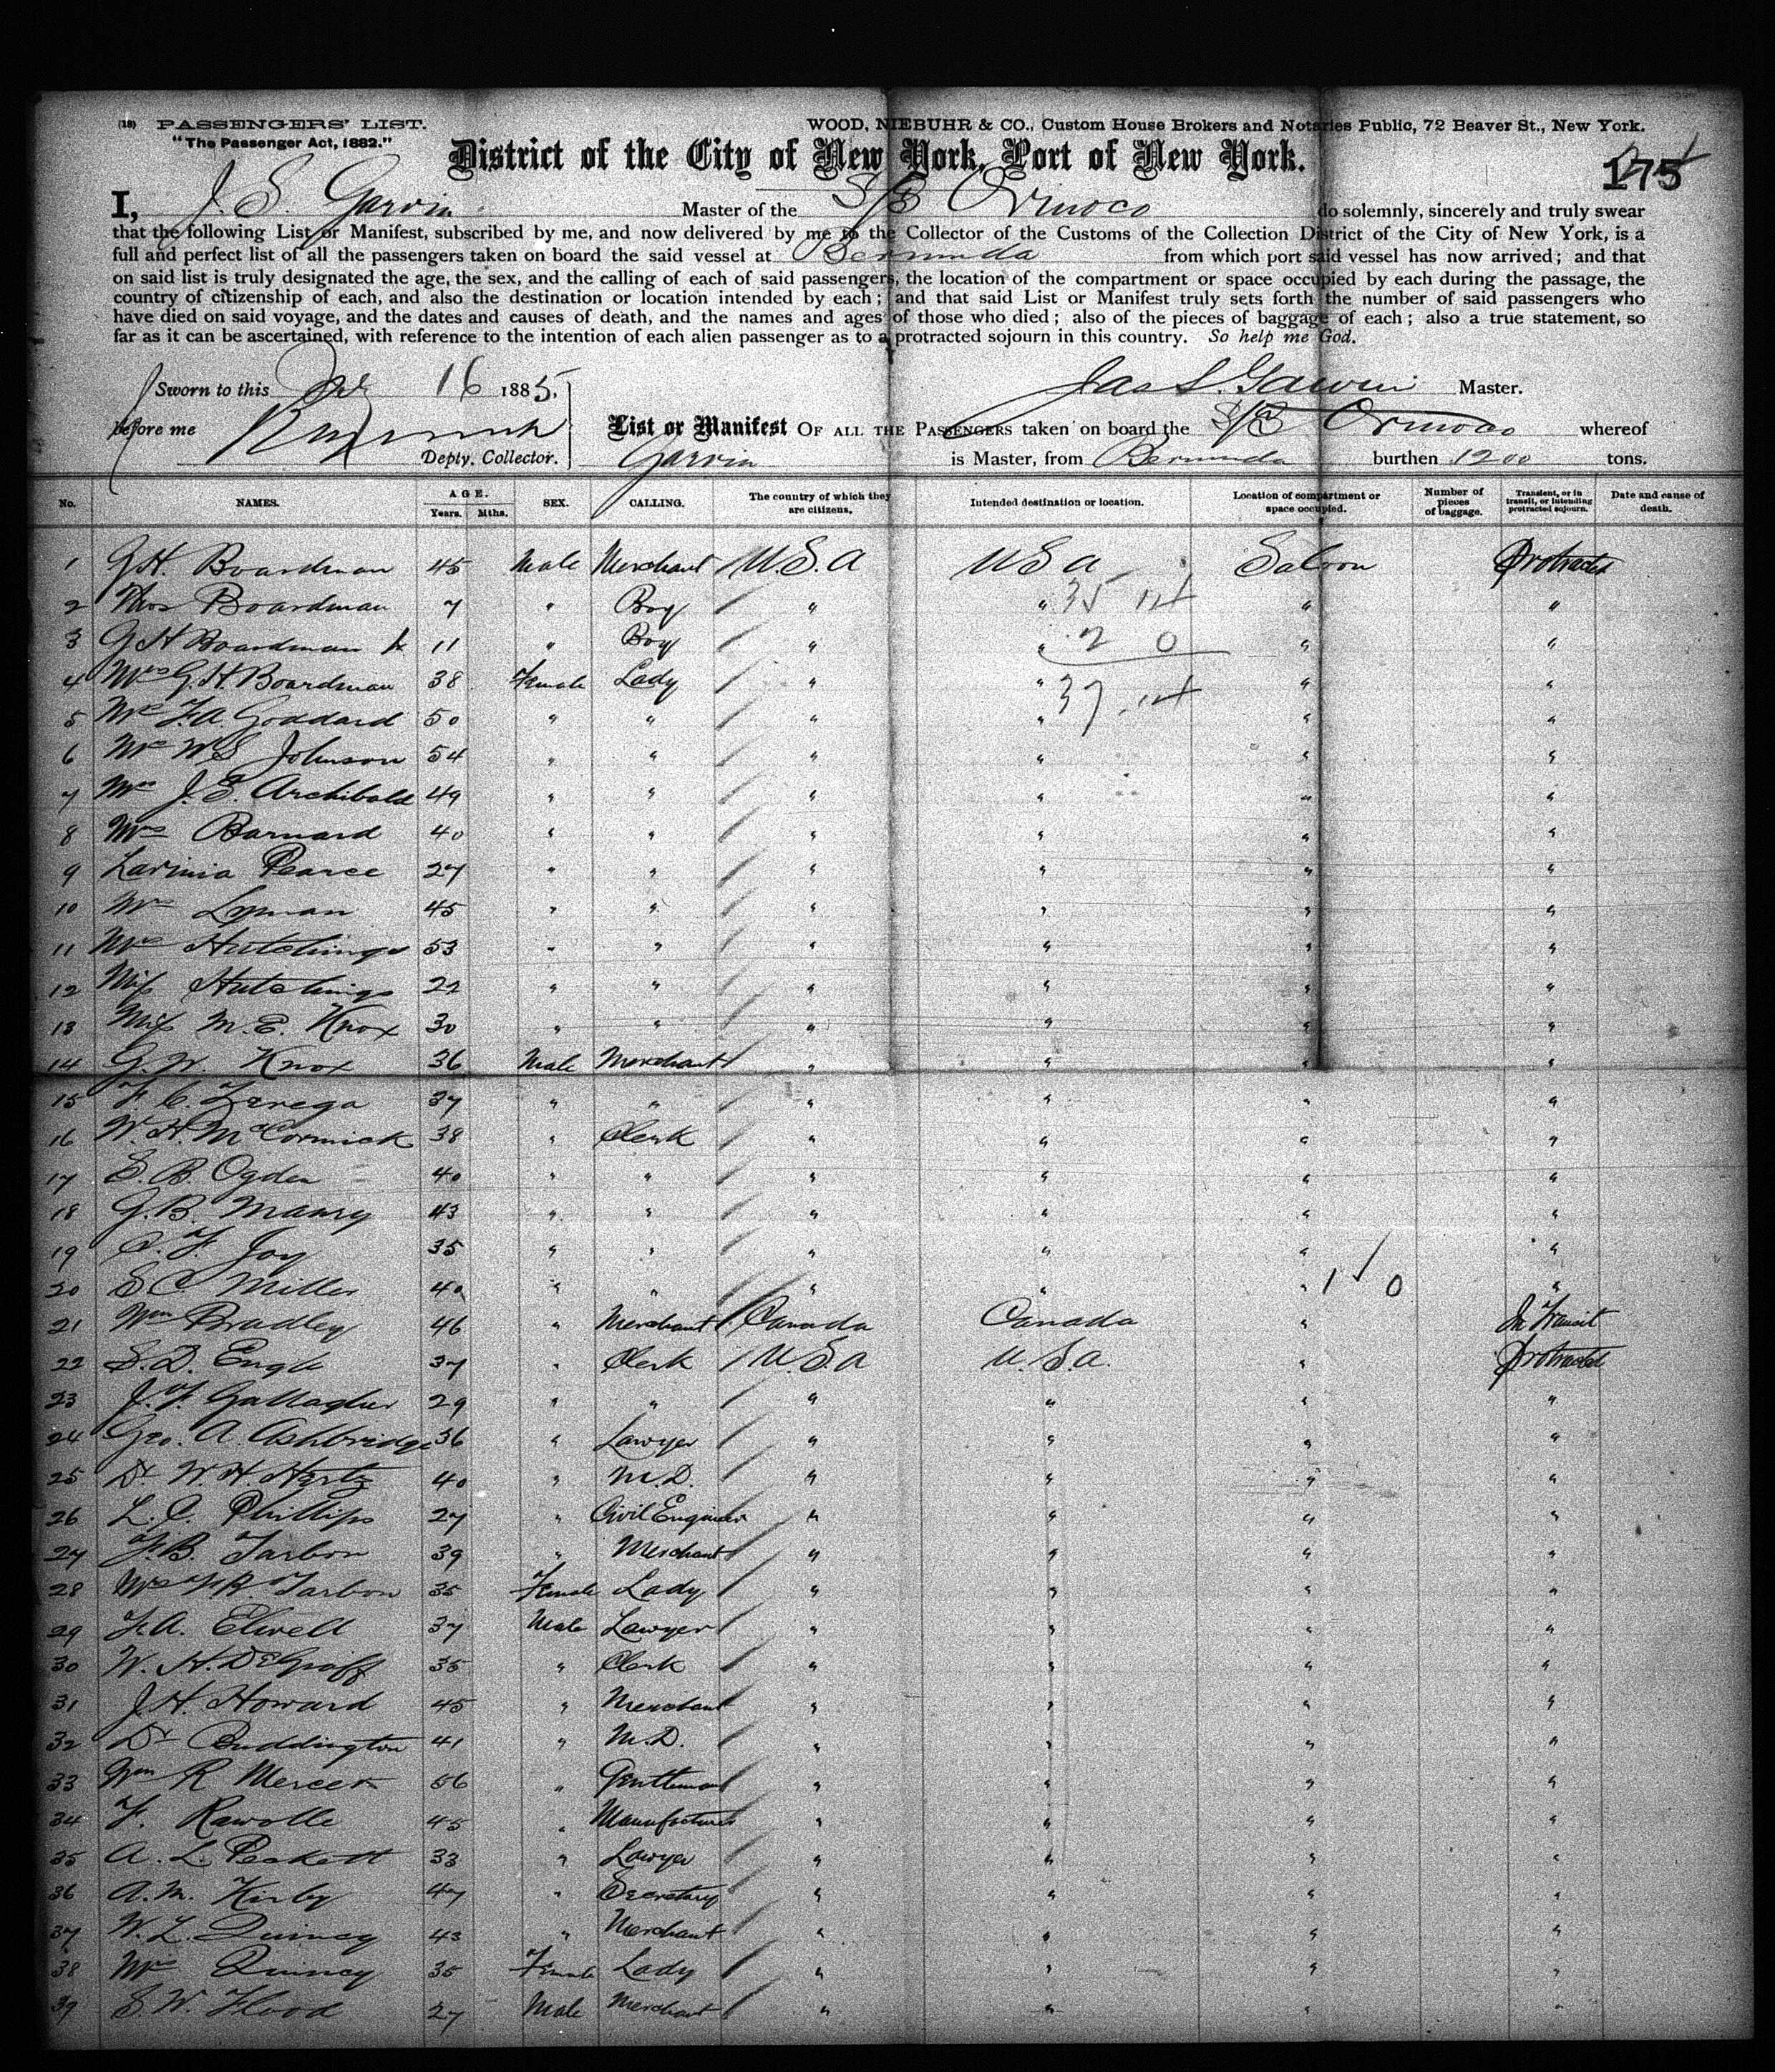 (18) PASSENGERS' LIST.
WOOD, NIEBUHR & CO., Custom House Brokers and Notaries Public, 72 Beaver St., New York.
"The Passenger Act, 1882."
District of the City of New York, Port of New York.
175
I, J. S. Garvin Master of the S/S Orinoco do solemnly, sincerely and truly swear
that the following List or Manifest, subscribed by me, and now delivered by me to the Collector of the Customs of the Collection District of the City of New York, is a
full and perfect list of all the passengers taken on board the said vessel at Bermuda from which port said vessel has now arrived; and that
on said list is truly designated the age, the sex, and the calling of each of said passengers, the location of the compartment or space occupied by each during the passage, the
country of citizenship of each, and also the destination or location intended by each; and that said List or Manifest truly sets forth the number of said passengers who
have died on said voyage, and the dates and causes of death, and the names and ages of those who died; also of the pieces of baggage of each; also a true statement, so
far as it can be ascertained, with reference to the intention of each alien passenger as to a protracted sojourn in this country. So help me God.
Sworn to this 16 1885, Jas S. Garvin Master.
before me List or Manifest OF ALL THE PASSENGERS taken on board the S/S Orinoco whereof
Deply. Collector. Garvin is Master, from Bermuda burthen 1200 tons.
No. NAMES. AGE. Years. Mths. SEX. CALLING. The country of which they are citizens. Intended destination or location. Location of compartment or space occupied. Number of pieces of baggage. Transient, or in transit, or intending protracted sojourn. Date and cause of death.
1 G.H. Boardman 45 Male Merchant U.S.A U S A Saloon Protracted
2 Thos Boardman 7 " Boy " " 35 " "
3 G H Boardman Jr 11 " Boy " " 2 0 " "
4 Mrs G.H. Boardman 38 Female Lady " " 37 " "
5 Mrs F.A. Goddard 50 " " " " " "
6 Mrs W S Johnson 54 " " " " " "
7 Mrs J. E. Archibald 49 " " " " " "
8 Mrs Barnard 40 " " " " " "
9 Lavinia Pearce 27 " " " " " "
10 Mrs Lyman 45 " " " " " "
11 Mrs Hutchings 53 " " " " " "
12 Miss Hutchings 22 " " " " " "
13 Miss M. E. Knox 30 " " " " " "
14 G. W. Knox 36 Male Merchant " " " "
15 F. C. Zerega 37 " " " " " "
16 W. H. McCormick 38 " Clerk " " " "
17 S. B. Ogden 40 " " " " " "
18 G. B. Maury 43 " " " " " "
19 C. F. Joy 35 " " " " " "
20 S C Miller 40 " " " " " 1 0 "
21 Wm Bradley 46 " Merchant Canada Canada " In Transit
22 S. D. Engle 37 " Clerk U S A U. S. A. " Protracted
23 J. F. Gallagher 29 " " " " " "
24 Geo. A. Ashbridge 36 " Lawyer " " " "
25 Dr W. H. Hartz 40 " M.D. " " " "
26 L. C. Phillips 27 " Civil Engineer " " " "
27 F. B. Tarbon 39 " Merchant " " " "
28 Mrs F. B. Tarbon 35 Female Lady " " " "
29 F. A. Elwell 37 Male Lawyer " " " "
30 W. H. DeGraff 35 " Clerk " " " "
31 J. H. Howard 45 " Merchant " " " "
32 Dr Buddington 41 " M.D. " " " "
33 Wm R Mercer 56 " Gentleman " " " "
34 F. Rawolle 45 " Manufacturer " " " "
35 A. L. Peckett 33 " Lawyer " " " "
36 A. M. Kirby 47 " Secretary " " " "
37 W. L. Quincy 43 " Merchant " " " "
38 Mrs Quincy 35 Female Lady " " " "
39 S. W. Flood 27 Male Merchant " " " "